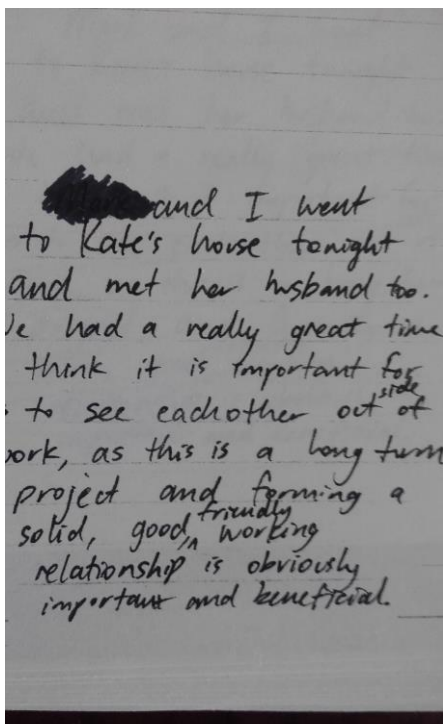 and I went
to Kate's house tonight
and met her husband too.
We had a really great time
think it is important for
to see eachother out side of
work, as this is a long turm
project and forming a
solid, good, friendly working
relationship is obviously
important and beneficial.